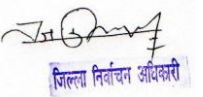 जिल्ला निर्वाचन अधिकारी